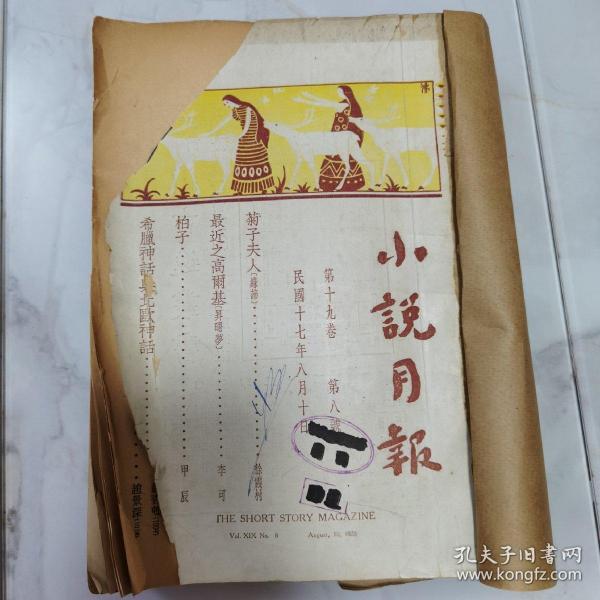 小說月報
第十九卷 第八號
民國十七年八月十日
菊子夫人(蘇茄)……徐霞村
最近之高爾基(昇曙夢)……李可
柏子……甲辰
希臘神話與北歐神話……趙景深
THE SHORT STORY MAGAZINE
Vol. XIX No. 8 August, 10, 1928
孔夫子旧书网
www.kongfz.com